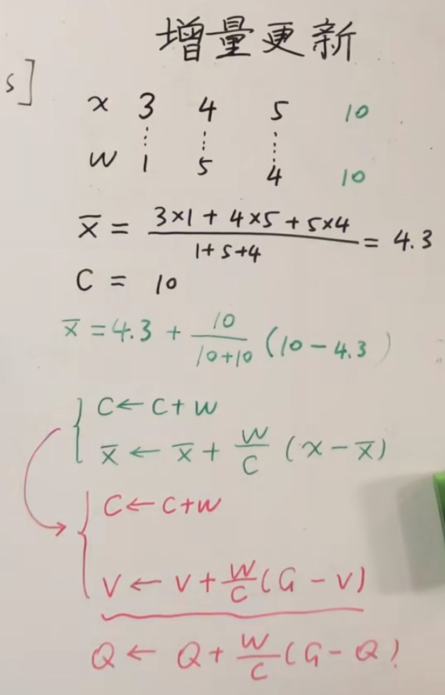 增量更新
s]
x 3 4 5 10
w 1 5 4 10
x̄ = (3×1 + 4×5 + 5×4)/(1+5+4) = 4.3
C = 10
x̄ = 4.3 + 10/(10+10) (10 - 4.3)
C ← C + W
x̄ ← x̄ + W/C (x - x̄)
C ← C+W
V ← V + W/C (G - V)
Q ← Q + W/C (G - Q)